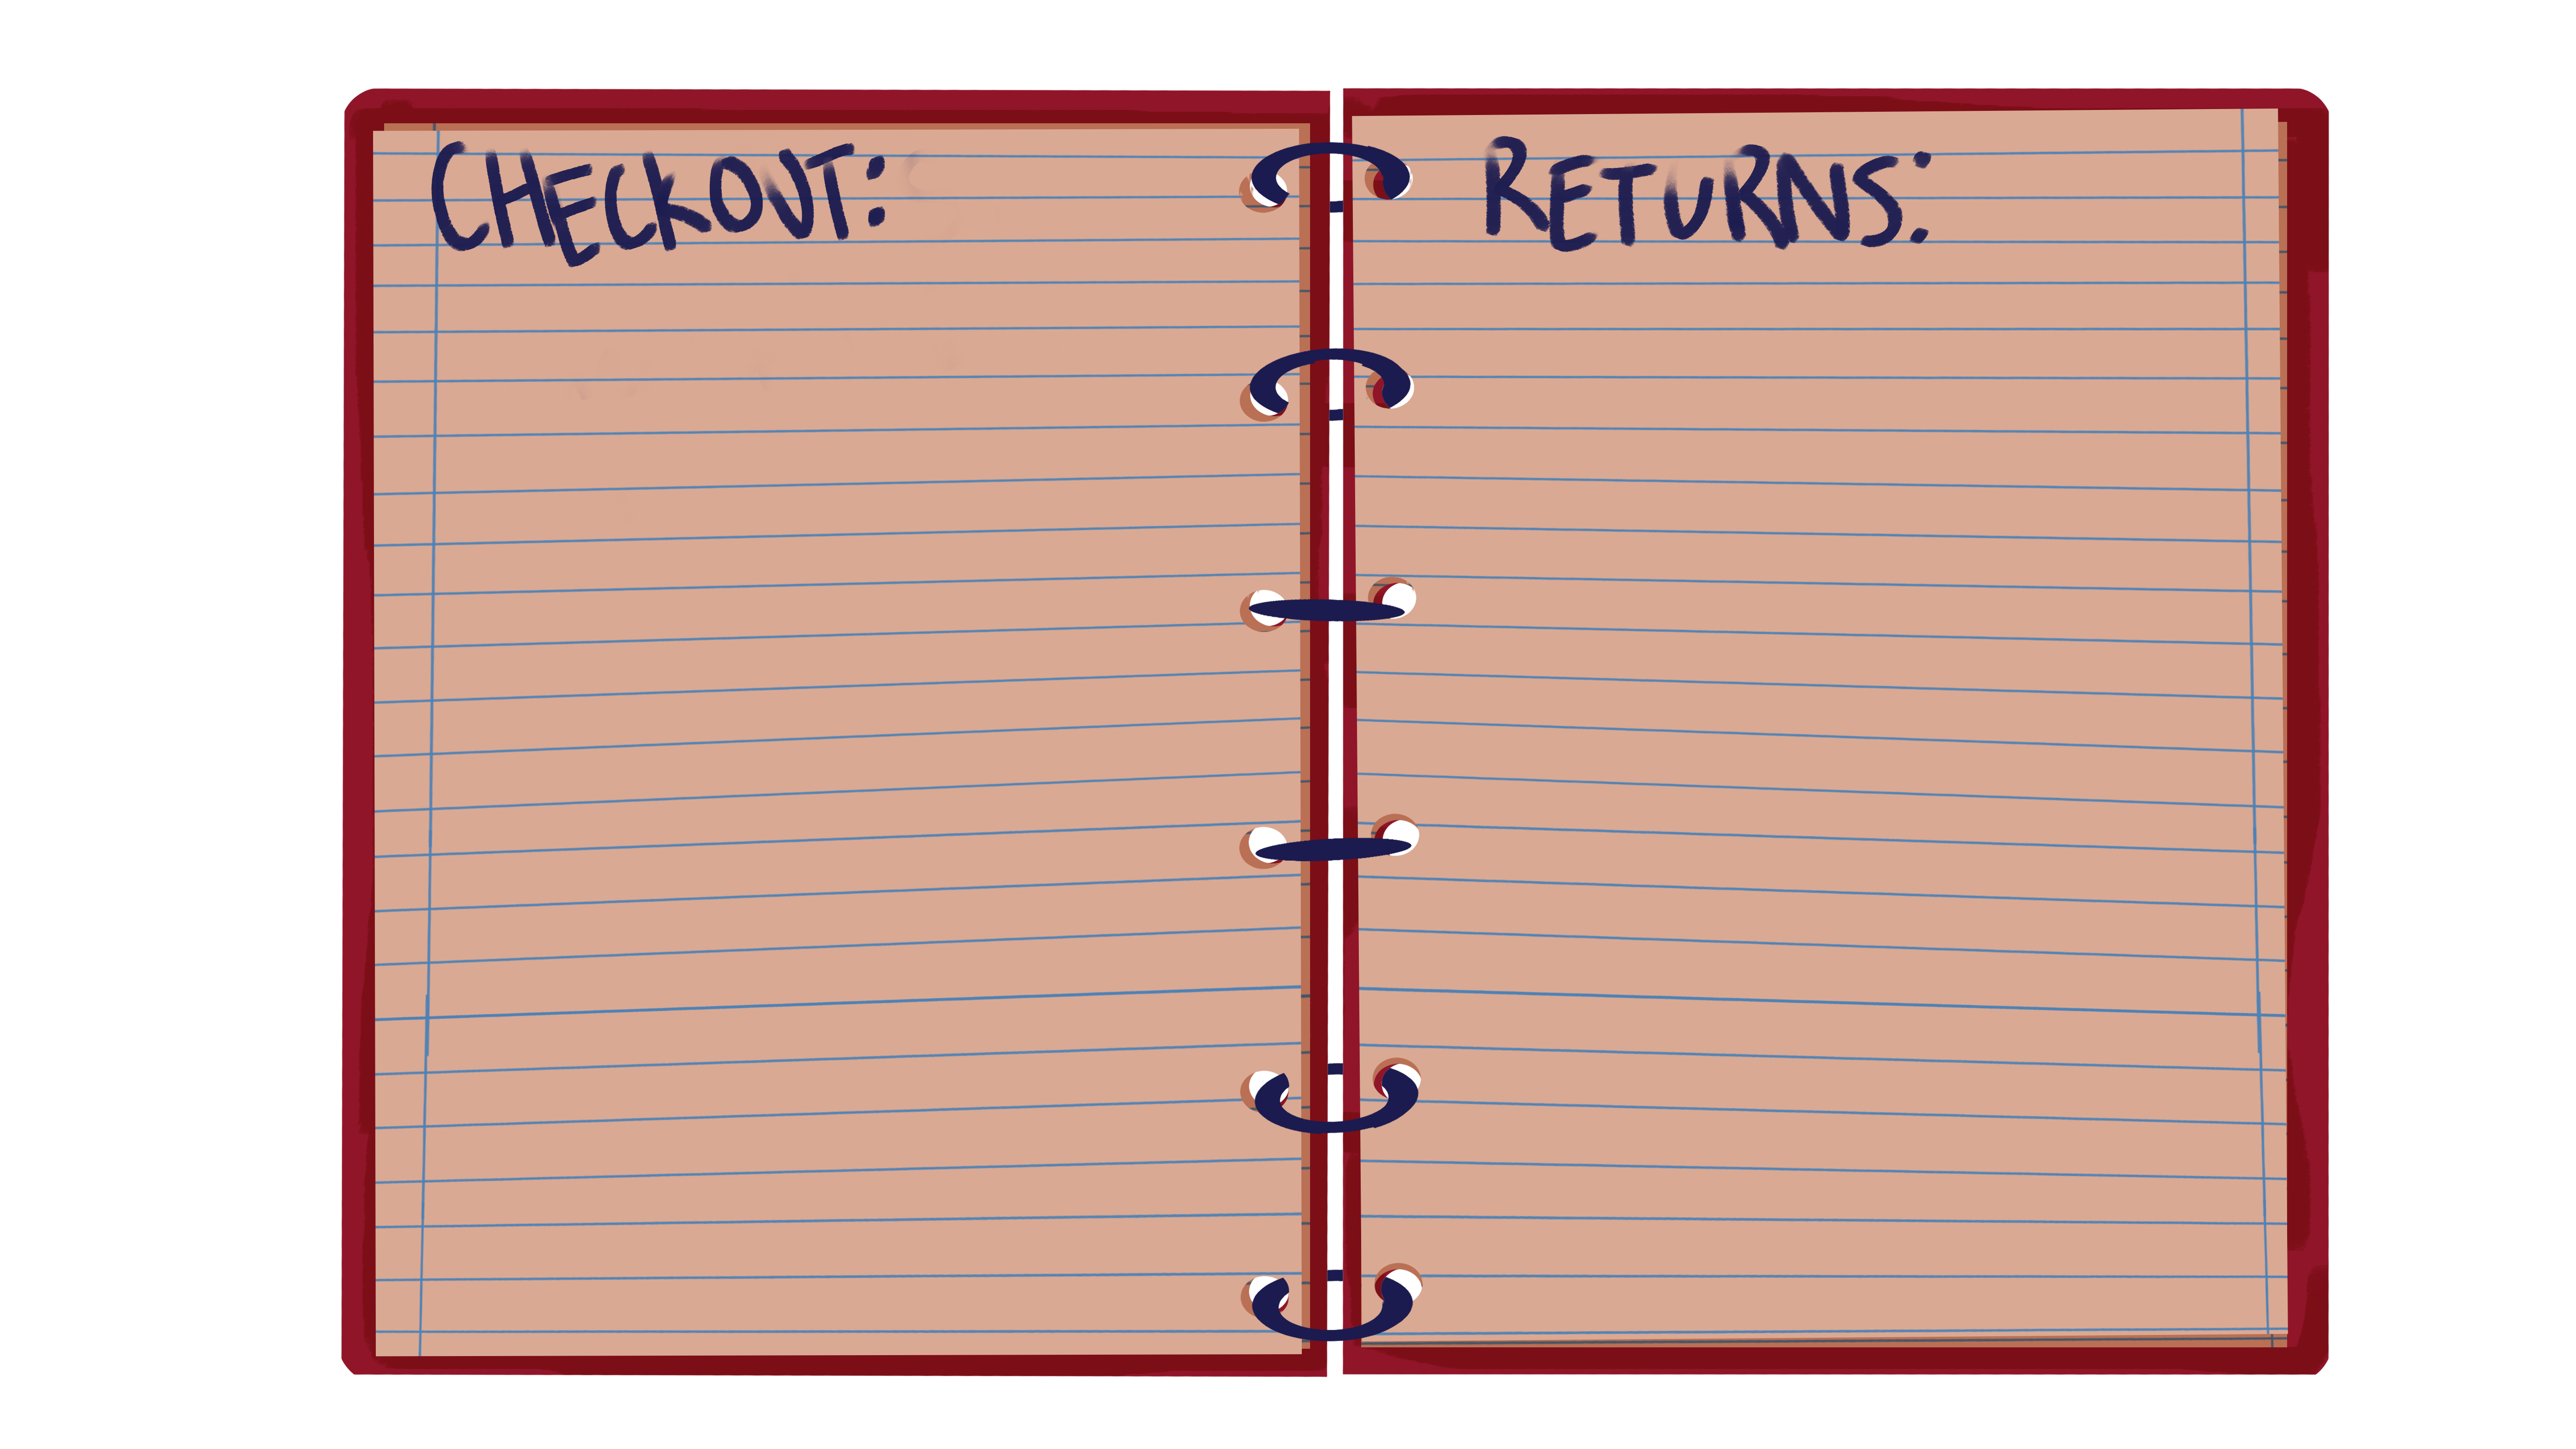 CHECKOUT:
RETURNS: